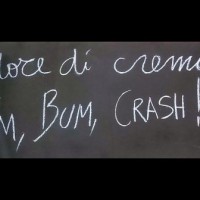 lore di crema
M, BUM, CRASH!